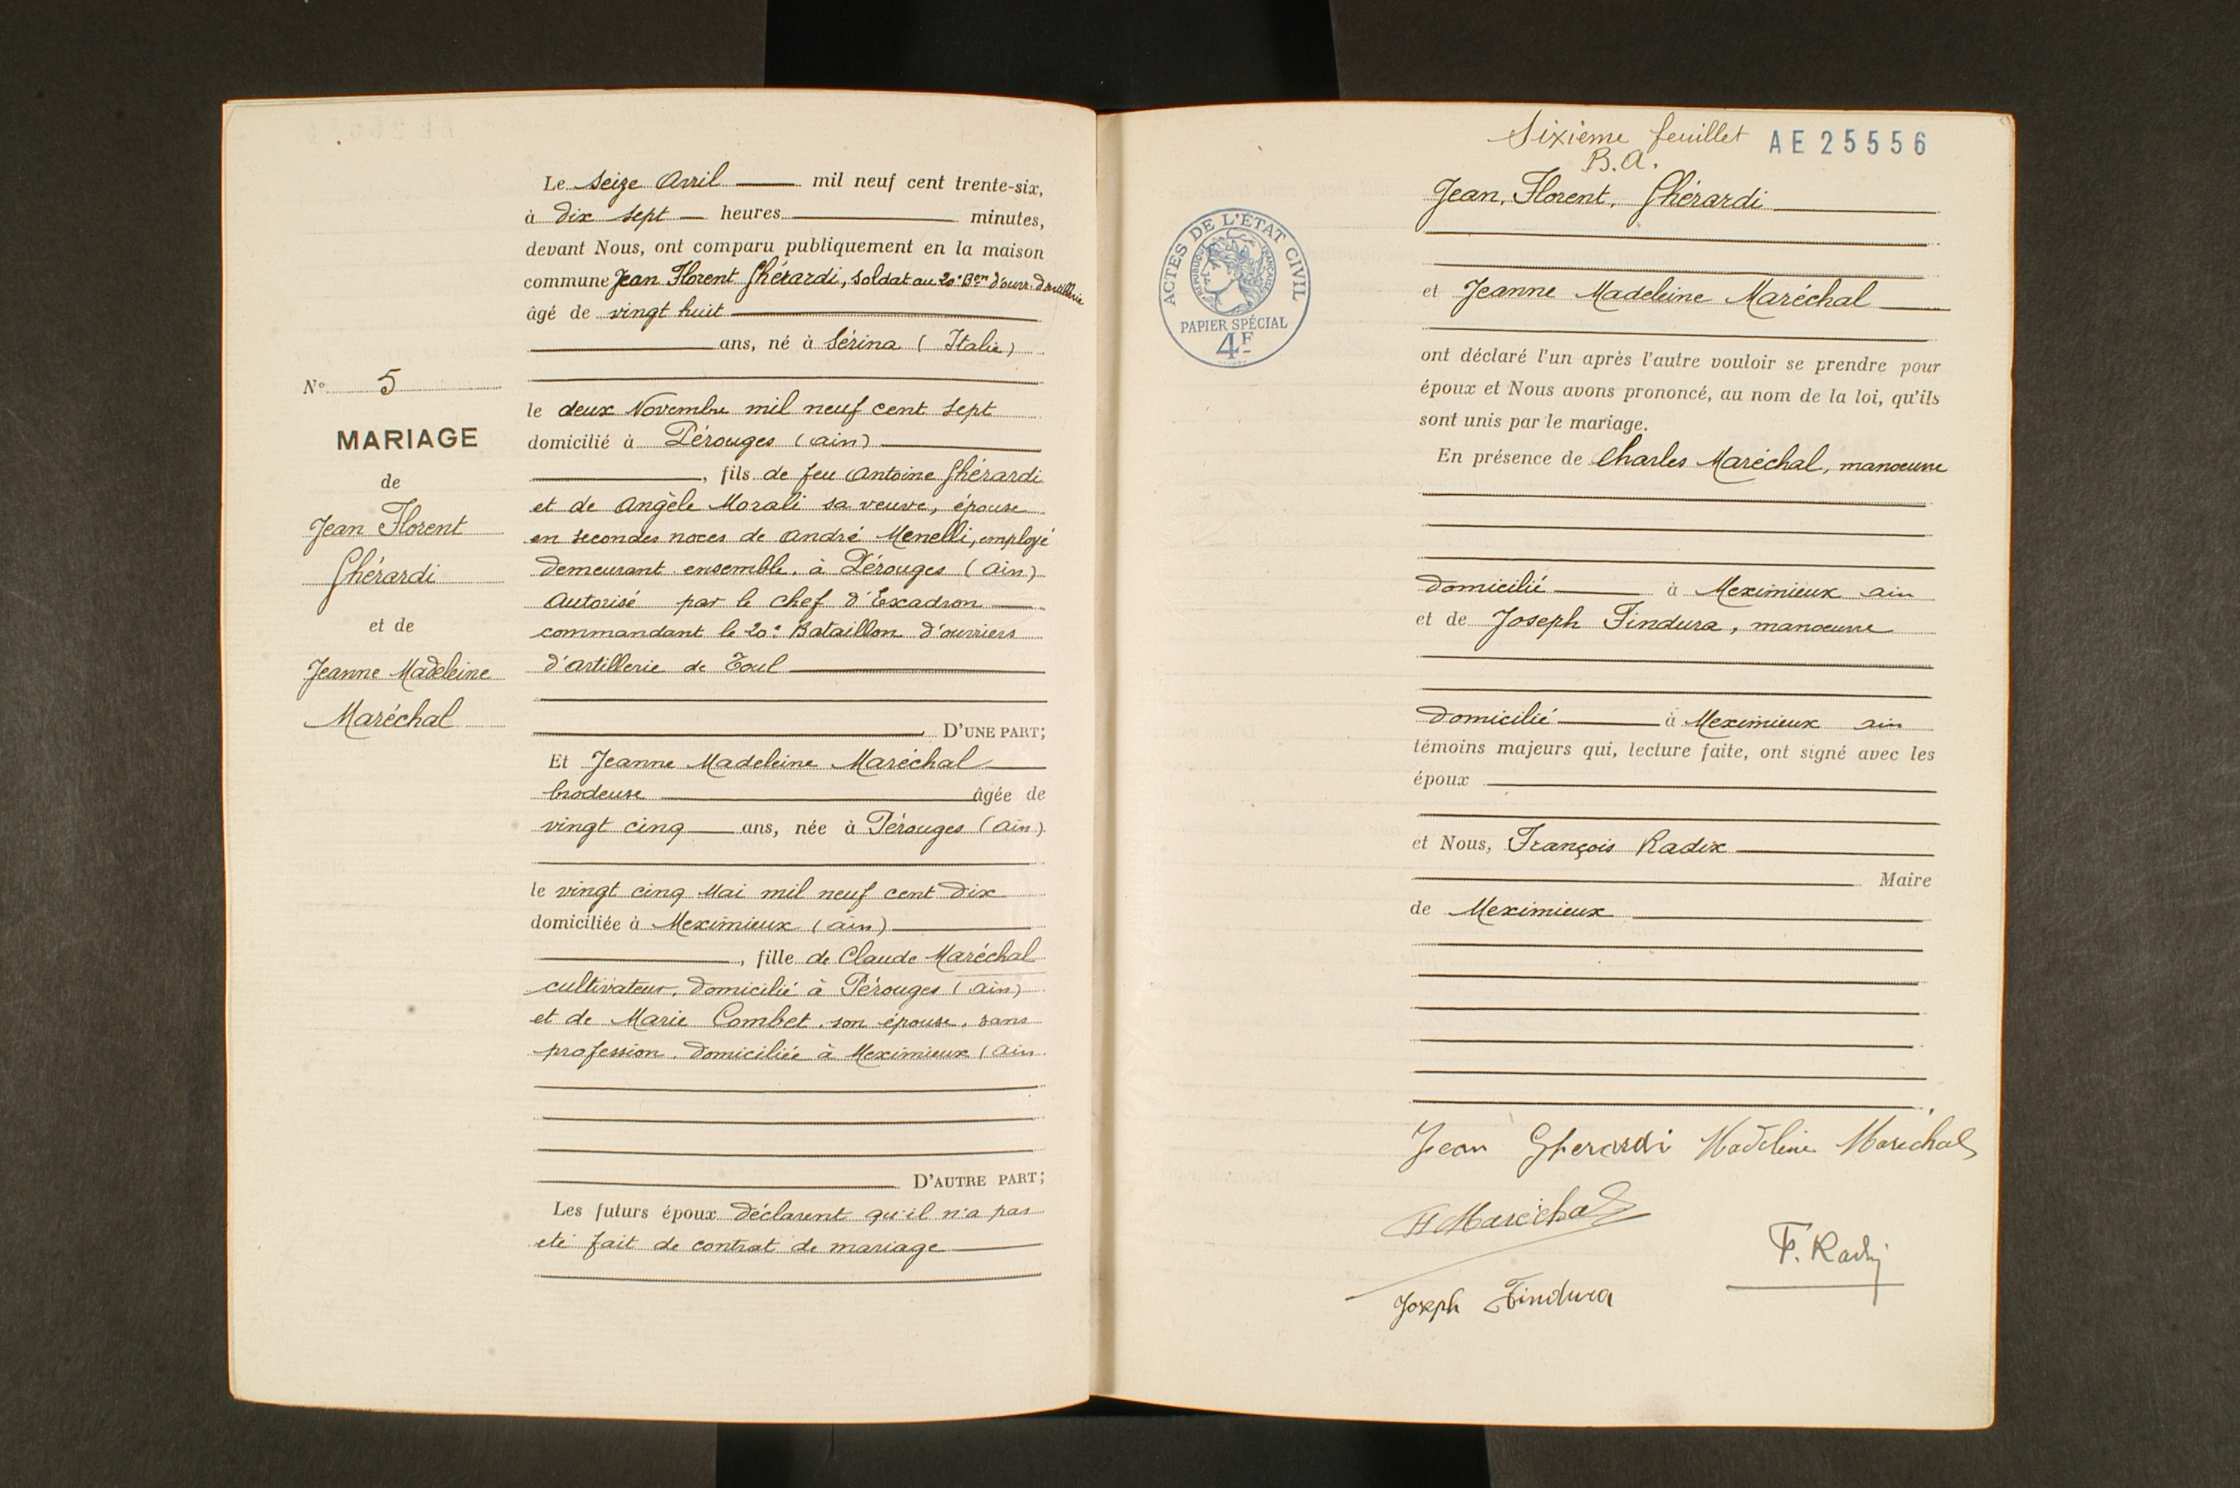 Le Seize Avril mil neuf cent trente-six,
à dix sept heures minutes,
devant Nous, ont comparu publiquement en la maison
commune Jean Florent Ghérardi, soldat au 20e Bon d'ouvr. d'artillerie
âgé de vingt huit
ans, né à Sérina (Italie)
le deux Novembre mil neuf cent sept
domicilié à Pérouges (ain)
, fils de feu Antoine Ghérardi
et de Angèle Morali sa veuve, épouse
en secondes noces de André Menelli, employé
demeurant ensemble à Pérouges (Ain)
Autorisé par le Chef d'Escadron
commandant le 20e Bataillon d'ouvriers
d'artillerie de Toul
D'UNE PART;
Et Jeanne Madeleine Maréchal
brodeuse âgée de
vingt cinq ans, née à Pérouges (Ain)
le vingt cinq Mai mil neuf cent dix
domiciliée à Meximieux (ain)
, fille de Claude Maréchal
cultivateur, domicilié à Pérouges (Ain)
et de Marie Combet, son épouse, sans
profession, domiciliée à Meximieux (Ain
D'AUTRE PART;
Les futurs époux déclarent qu'il n'a pas
été fait de contrat de mariage
No 5
MARIAGE
de
Jean Florent
Ghérardi
et de
Jeanne Madeleine
Maréchal
Sixième feuillet AE 25556
B.A.
ACTES DE L'ÉTAT CIVIL
RÉPUBLIQUE FRANÇAISE
PAPIER SPÉCIAL
4F
Jean, Florent, Ghérardi
et Jeanne Madeleine Maréchal
ont déclaré l'un après l'autre vouloir se prendre pour
époux et Nous avons prononcé, au nom de la loi, qu'ils
sont unis par le mariage.
En présence de Charles Maréchal, manœuvre
domicilié à Meximieux ain
et de Joseph Findura, manœuvre
domicilié à Meximieux ain
témoins majeurs qui, lecture faite, ont signé avec les
époux
et Nous, François Radix
Maire
de Meximieux
Jean Gherardi Madeleine Maréchal
Maréchal
F. Radix
Joseph Findura